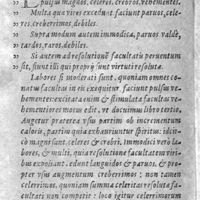 pulsu magnos, celeres, crebros, vehementes.
„ Multa qua vires exolvat, faciunt parvos, cele-
„ res, crebérrimos, debiles.
„ Supra modum autem immodica, parvos valdè,
„ tardos, raros, debiles.
„ Si autem ad resolutionē facultatis perventum
„ sit, fiunt illi qui proprii sunt virtuti resolutæ.
Labores si moderati sunt, quoniam omnes co-
natus facultatem in eis exequitur, faciunt pulsus ve-
hementes: excitata enim & stimulata facultas ve-
hementiores motus edit, ut docuimus libro tertio,
Augetur præterea usus partim ob incrementum
caloris, partim quia exhauriuntur spiritus: idcir-
co magni sunt, celeres & crebri. Immodici verò la-
bores, & multi, quia resolutione facultatem viri-
bus expoliant, edent languidos & parvos, & pro-
pter usus augmentum creberrimos: non tamen
celerrimos, quoniam summa celeritas resoluta fa-
cultati non competit: loco igitur celerrimorum